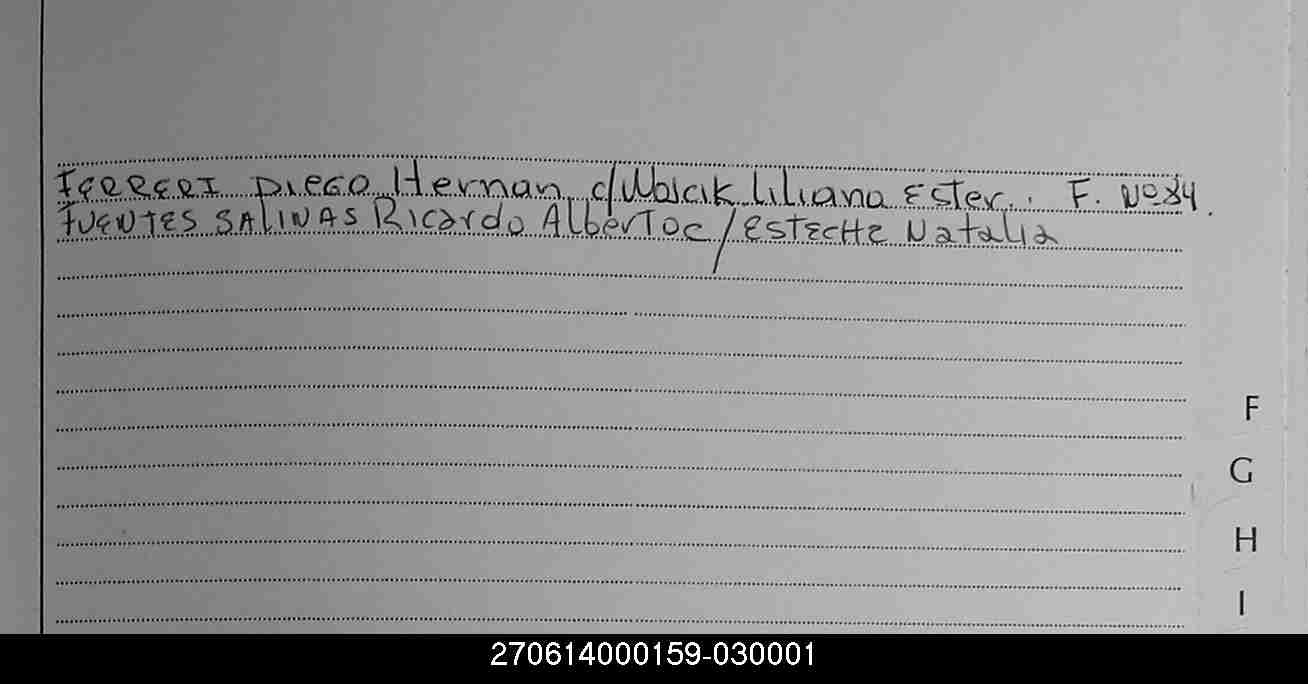 FERRERI DIEGO Hernan c/Wolcik Liliana Ester. F. Nº 34.
FUENTES SALINAS Ricardo Alberto c/ESTECHE Natalia
F
G
H
I
270614000159-030001